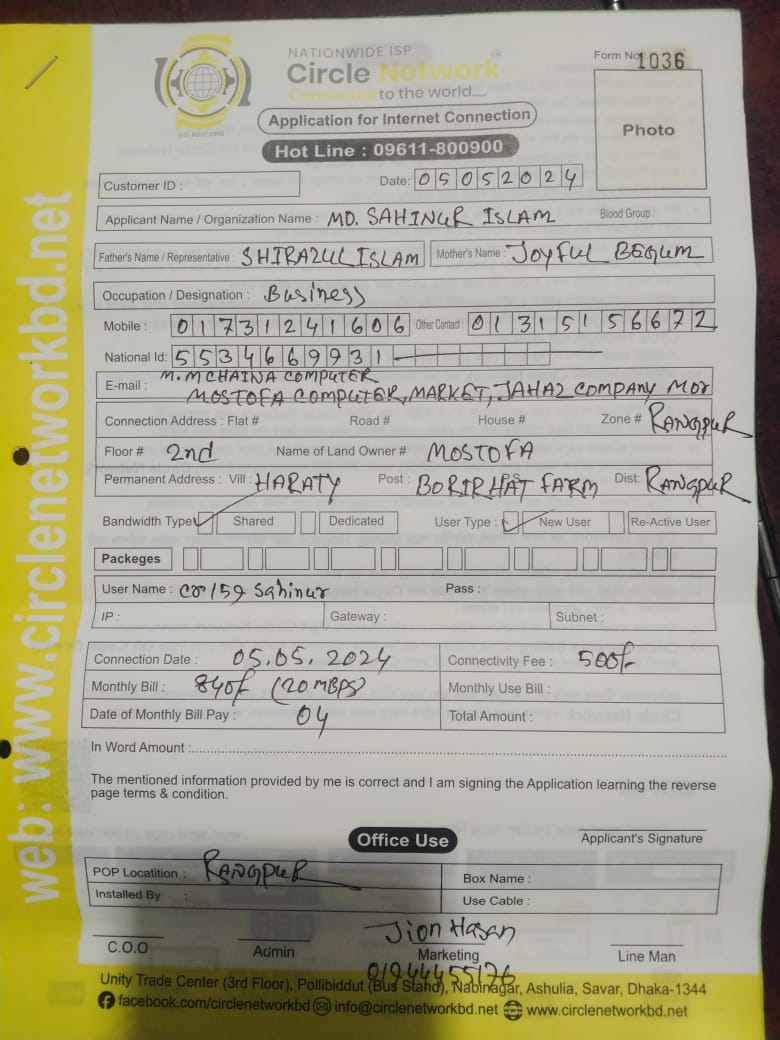 NATIONWIDE ISP
Circle Network
Connected to the world.....
ISO 9001:2015
Form No 1036
Application for Internet Connection
Photo
Hot Line : 09611-800900
Customer ID :
Date: 05052024
Applicant Name / Organization Name : MD. SAHINUR ISLAM Blood Group :
Father's Name / Representative : SHIRAZUL ISLAM Mother's Name : JOYFUL BEGUM
Occupation / Designation : Business
Mobile : 01731241606 Other Contact : 01315156672
National Id: 5534669931
M.M CHAINA COMPUTER
E-mail : MOSTOFA COMPUTER, MARKET, JAHAZ COMPANY MOR
Connection Address : Flat # Road # House # Zone # RANGPUR
Floor # 2nd Name of Land Owner # MOSTOFA
Permanent Address : Vill : HARATY Post : BORIRHAT FARM Dist: RANGPUR
Bandwidth Type Shared Dedicated User Type : New User Re-Active User
Packeges
User Name : Sahinur Pass :
IP : Gateway : Subnet :
Connection Date : 05.05.2024 Connectivity Fee : 500/-
Monthly Bill : 840/- (20 MBPS) Monthly Use Bill :
Date of Monthly Bill Pay : 04 Total Amount :
In Word Amount :
The mentioned information provided by me is correct and I am signing the Application learning the reverse
page terms & condition.
Applicant's Signature
Office Use
POP Locatition : RANGPUR Box Name :
Installed By : Use Cable :
Jion Hasan
C.O.O Admin Marketing Line Man
01944455176
Unity Trade Center (3rd Floor), Pollibiddut (Bus Stand), Nabinagar, Ashulia, Savar, Dhaka-1344
facebook.com/circlenetworkbd info@circlenetworkbd.net www.circlenetworkbd.net
web: www.circlenetworkbd.net